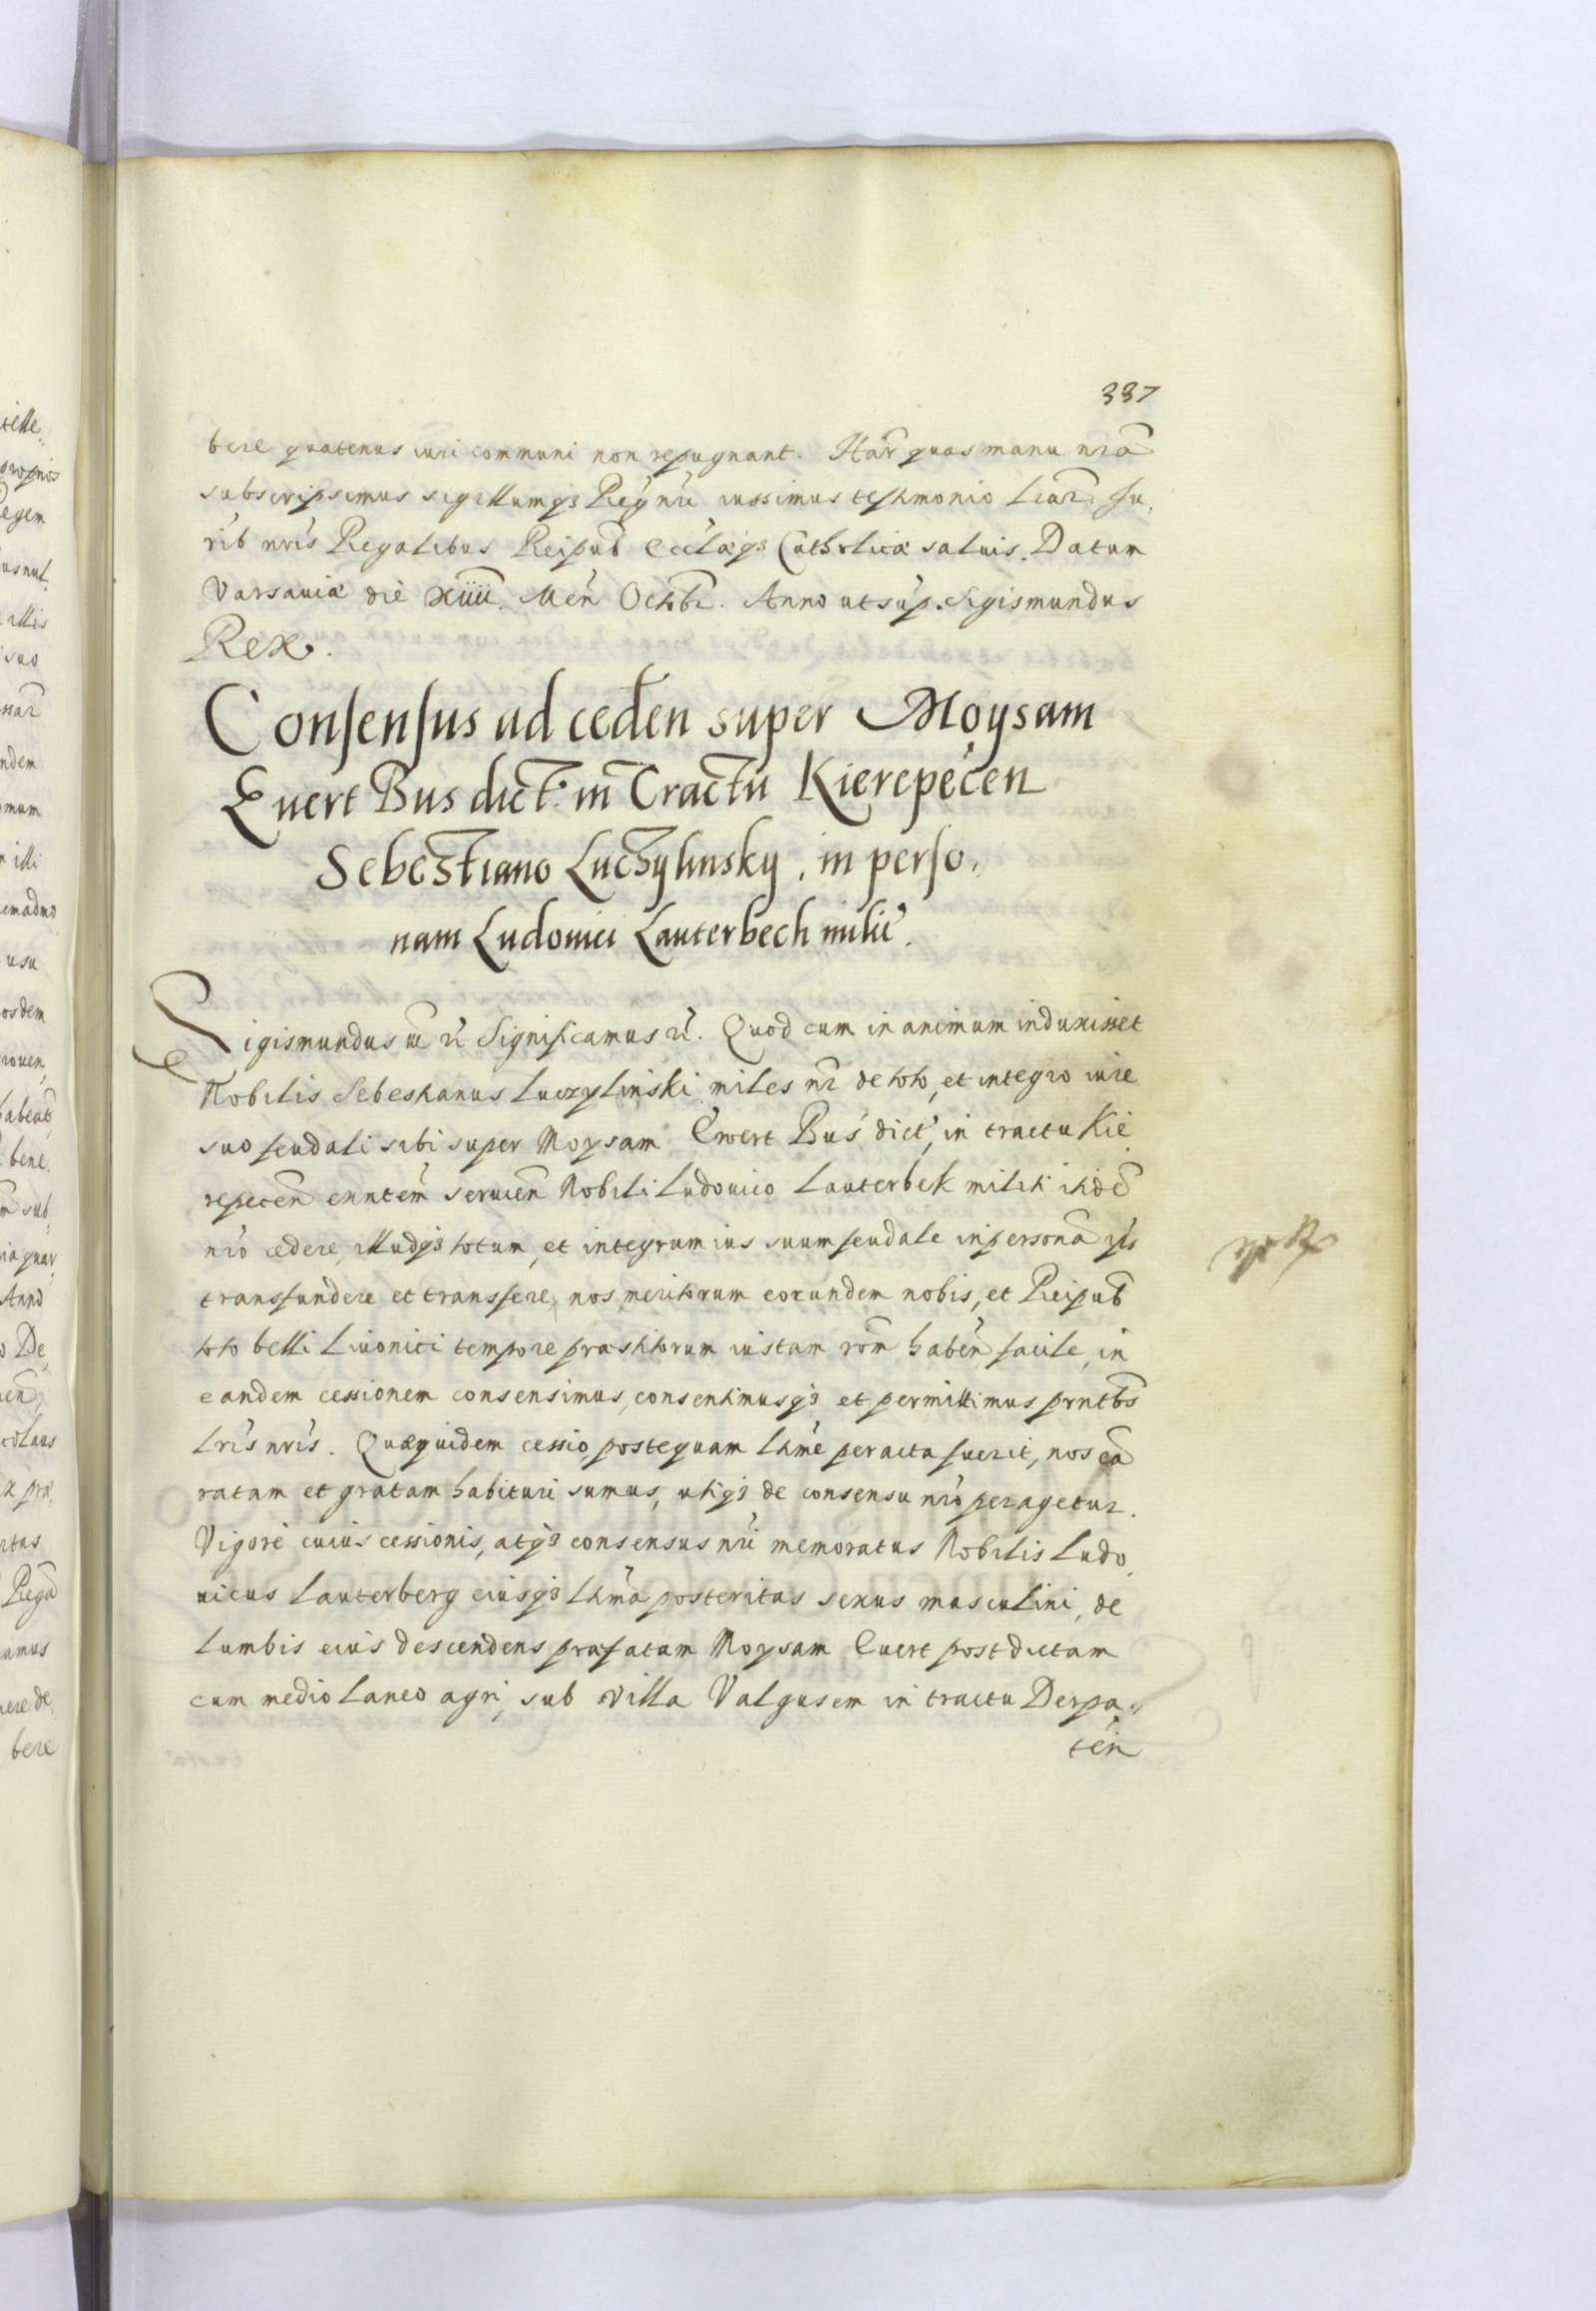 337
bere quatenus iuri communi non repugnant. Har̃ quas manu nrã
subscripsimus sigillumqȝ Regni nrĩ iussimus testimonio lrar̃. Ju,
rib nrĩs Regalibus Reipub̃ Ecclæqȝ Catholicæ saluis. Datum
Varsauiæ die XIIII. Meñ Octobr̃. Anno ut sup̃. Sigismundus
Rex.
Consensus ad ceden̄ super Moysam
Euert Bus dict: in Tractu Kierepecen
Sebestiano Luczylinsky, in perso,
nam Ludouici Lauterbech milit̃.
Sigismundus Significamus. Quod cum in animum induxisset
Nobilis Sebestianus Luczylinski miles nr̃ de toto, et integro iure
suo feudali sibi super Moysam Ewert Bus dict, in tractu Kie
repecen̄ seruien̄ Nobili Ludouico Lauterbek militi itidē
nrõ cedere, illudqȝ totum, et integrum ius suum feudale in personã
transfundere et transfere, nos meritorum eorundem nobis, et Reipub̃
toto belli Liuonici tempore præstitorum iustam rõm haben̄ facile, in
eandem cessionem consensimus, consentimusqȝ et permittimus prñtb̃s
lrĩs nrĩs. Quæquidem cessio, postequam ltm̃e peracta fuerit, nos eã
ratam et gratam habituri sumus, utiqȝ de consensu nrõ peragetur.
Vigore cuius cessionis, atqȝ consensus nrĩ memoratus Nobilis Ludo,
uicus Lauterberg eiusqȝ ltm̃a posteritas sexus masculini, de
lumbis eius descendens præfatam Moysam Euert post dictam
cum medio laneo agri, sub villa Valgusem in tractu Derpa,,
ten̄